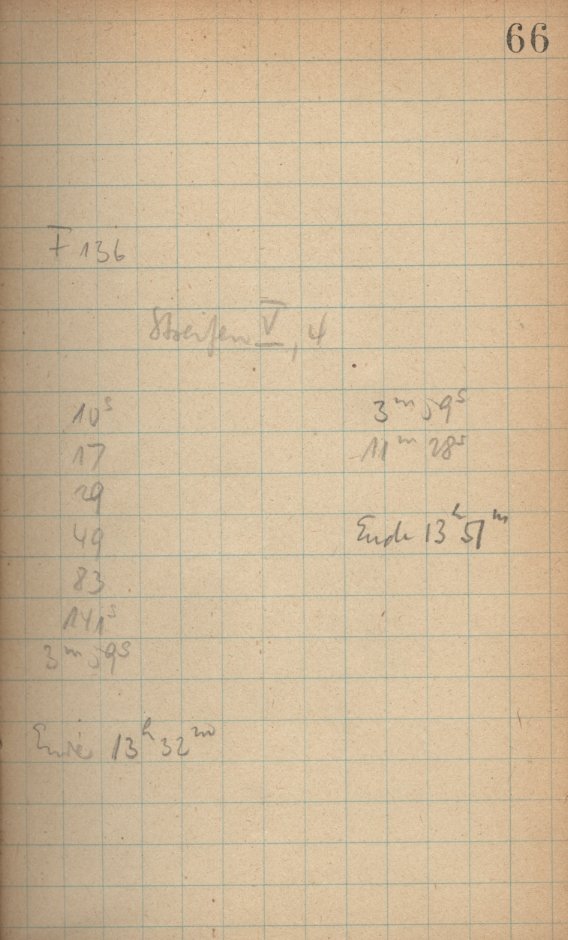 66
F 136
Streifen V, 4
10ˢ
17
29
49
83
141ˢ
3ᵐ 59ˢ
Ende 13ʰ 32ᵐ
3ᵐ 59ˢ
11ᵐ 28ˢ
Ende 13ʰ 51ᵐ